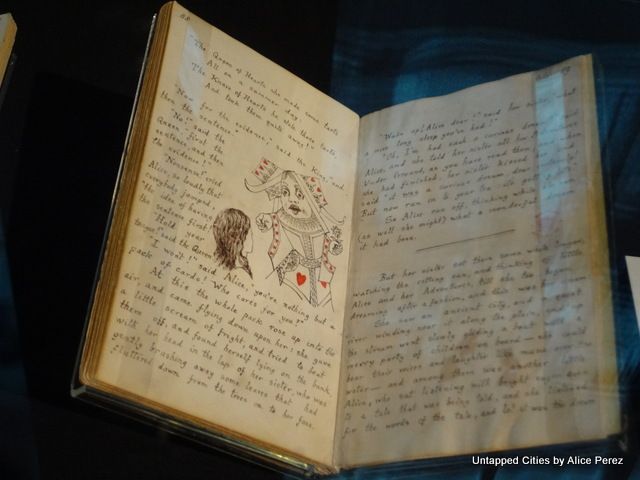 88.
"The Queen of Hearts she made some tarts
All on a summer day:
The Knave of Hearts he stole those tarts,
And took them quite away!"
"Now for the evidence," said the King, "and
then the sentence."
"No!" said the
Queen, "first the
sentence, and then
the evidence!"
"Nonsense!" cried
Alice, so loudly that
everybody jumped,
"the idea of having
the sentence first!"
"Hold your
tongue!" said the Queen.
"I won't!" said Alice, "you're nothing but a
pack of cards! Who cares for you?"
At this the whole pack rose up into the
air, and came flying down upon her: she gave
a little scream of fright, and tried to beat
them off, and found herself lying on the bank,
with her head in the lap of her sister, who was
gently brushing away some leaves that had
fluttered down from the trees on to her face.
"Wake up! Alice dear!" said her sister, "what
a nice long sleep you've had!"
"Oh, I've had such a curious dream!" said
Alice, and she told her sister all her Adventures
Under Ground, as you have read them, and when
she had finished, her sister kissed her and
said "it was a curious dream, dear, certainly!
But now run in to your tea: it's getting late."
So Alice ran off, thinking while she ran
(as well she might) what a wonderful dream
it had been.
But her sister sat there some while longer,
watching the setting sun, and thinking of little
Alice and her Adventures, till she too began
dreaming after a fashion, and this was her dream:
She saw an ancient city, and a quiet
river winding near it along the plain, and up
the stream went slowly gliding a boat with a
merry party of children on board — she could
hear their voices and laughter like music over the
water — and among them was another little
Alice, who sat listening with bright eager eyes
to a tale that was being told, and she listened
for the words of the tale, and lo! it was the dream
Untapped Cities by Alice Perez